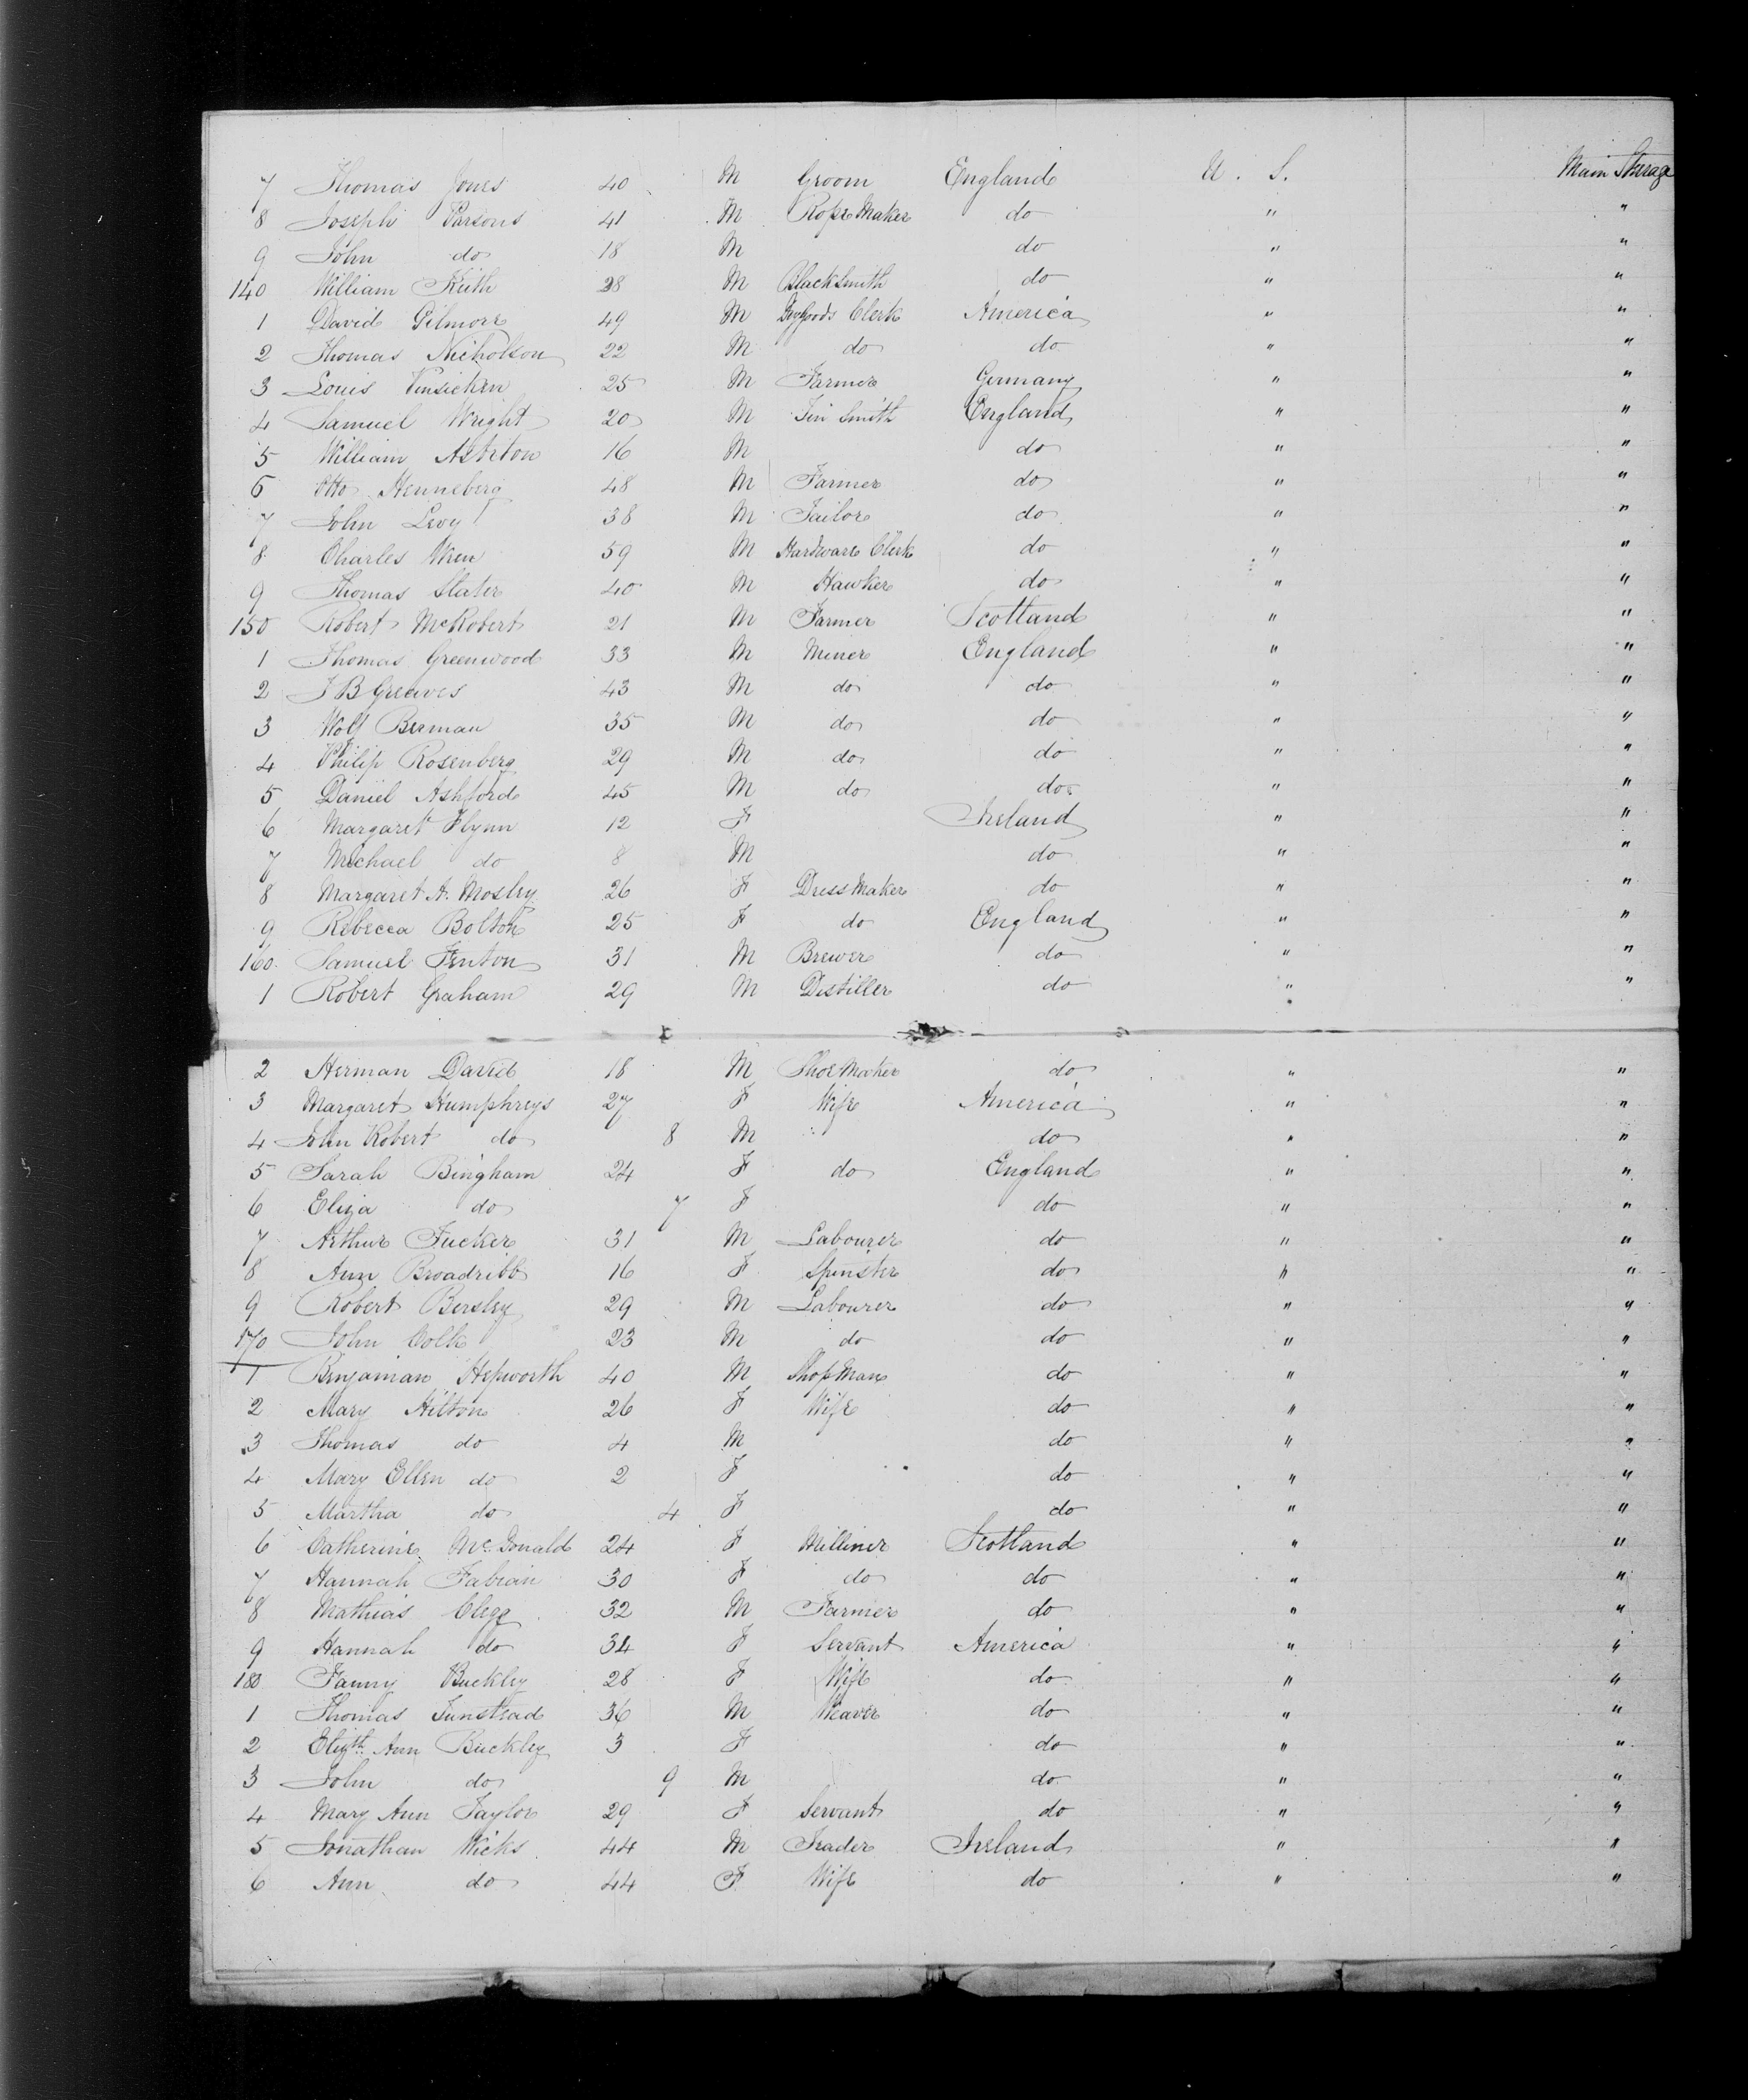 7 Thomas Jones 40 M Groom England U. S. Main Sterage
8 Joseph Parsons 41 M Rope Maker do " "
9 John do 18 M do " "
140 William Keith 28 M BlackSmith do " "
1 David Gilmore 49 M DryGoods Clerk America " "
2 Thomas Nicholson 22 M do do " "
3 Louis 25 M Farmer Germany " "
4 Samuel Wright 20 M Tin Smith England " "
5 William Ashton 16 M do " "
6 Otto Henneberg 48 M Farmer do " "
7 John Levy 38 M Tailor do " "
8 Charles Wren 59 M Hardware Clerk do " "
9 Thomas Slater 40 M Hawker do " "
150 Robert McRobert 21 M Farmer Scotland " "
1 Thomas Greenwood 33 M Miner England " "
2 J B Greaves 43 M do do " "
3 Wolf Berman 35 M do do " "
4 Philip Rosenberg 29 M do do " "
5 Daniel Ashford 45 M do do " "
6 Margaret Flynn 12 F Ireland " "
7 Michael do 8 M do " "
8 Margaret A. Mosley 26 F Dress Maker do " "
9 Rebecca Bolton 25 F do England " "
160 Samuel Fenton 31 M Brewer do " "
1 Robert Graham 29 M Distiller do " "
2 Herman David 18 M Shoe Maker do " "
3 Margaret Humphreys 27 F Wife America " "
4 John Robert do 8 M do " "
5 Sarah Bingham 24 F do England " "
6 Eliza do 7 F do " "
7 Arthur Tucker 31 M Labourer do " "
8 Ann Broadribb 16 F Spinster do " "
9 Robert Bersley 29 M Labourer do " "
170 John Colk 23 M do do " "
1 Benjaman Hepworth 40 M ShopMan do " "
2 Mary Hilton 26 F Wife do " "
3 Thomas do 4 M do " "
4 Mary Ellen do 2 F do " "
5 Martha do 4 F do " "
6 Catherine McDonald 24 F Milliner Scotland " "
7 Hannah Fabian 30 F do do " "
8 Mathias Clegg 32 M Farmer do " "
9 Hannah do 34 F Servant America " "
180 Fanny Buckley 28 F Wife do " "
1 Thomas Tunstead 36 M Weaver do " "
2 Elizth Ann Buckley 3 F do " "
3 John do 9 M do " "
4 Mary Ann Taylor 29 F Servant do " "
5 Jonathan Wicks 44 M Trader Ireland " "
6 Ann do 44 F Wife do " "